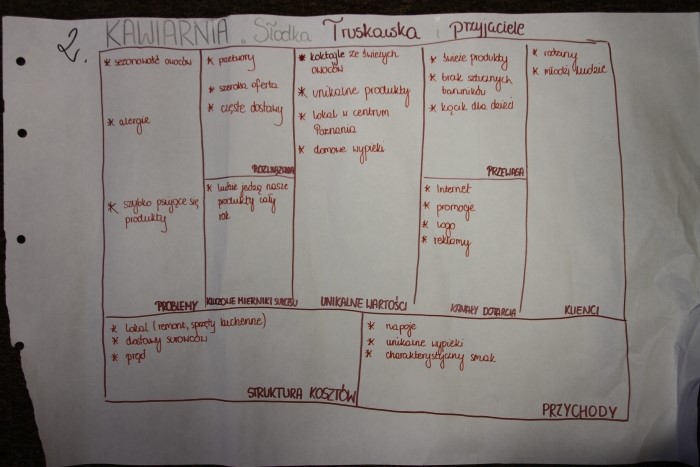 2. KAWIARNIA „Słodka Truskawka i przyjaciele
* sezonowość owoców
* alergie
* szybko psujące się
produkty
PROBLEMY
* przetwory
* szeroka oferta
* częste dostawy
ROZWIĄZANIA
* ludzie jedzą nasze
produkty cały
rok
KLUCZOWE MIERNIKI SUKCESU
* koktajle ze świeżych
owoców
* unikalne produkty
* lokal w centrum
Poznania
* domowe wypieki
UNIKALNE WARTOŚCI
* świeże produkty
* brak sztucznych
barwników
* kącik dla dzieci
PRZEWAGA
* Internet
* promocje
* logo
* reklamy
KANAŁY DOTARCIA
* rodziny
* młodzi ludzie
KLIENCI
* lokal (remont, sprzęty kuchenne)
* dostawy surowców
* prąd
STRUKTURA KOSZTÓW
* napoje
* unikalne wypieki
* charakterystyczny smak
PRZYCHODY